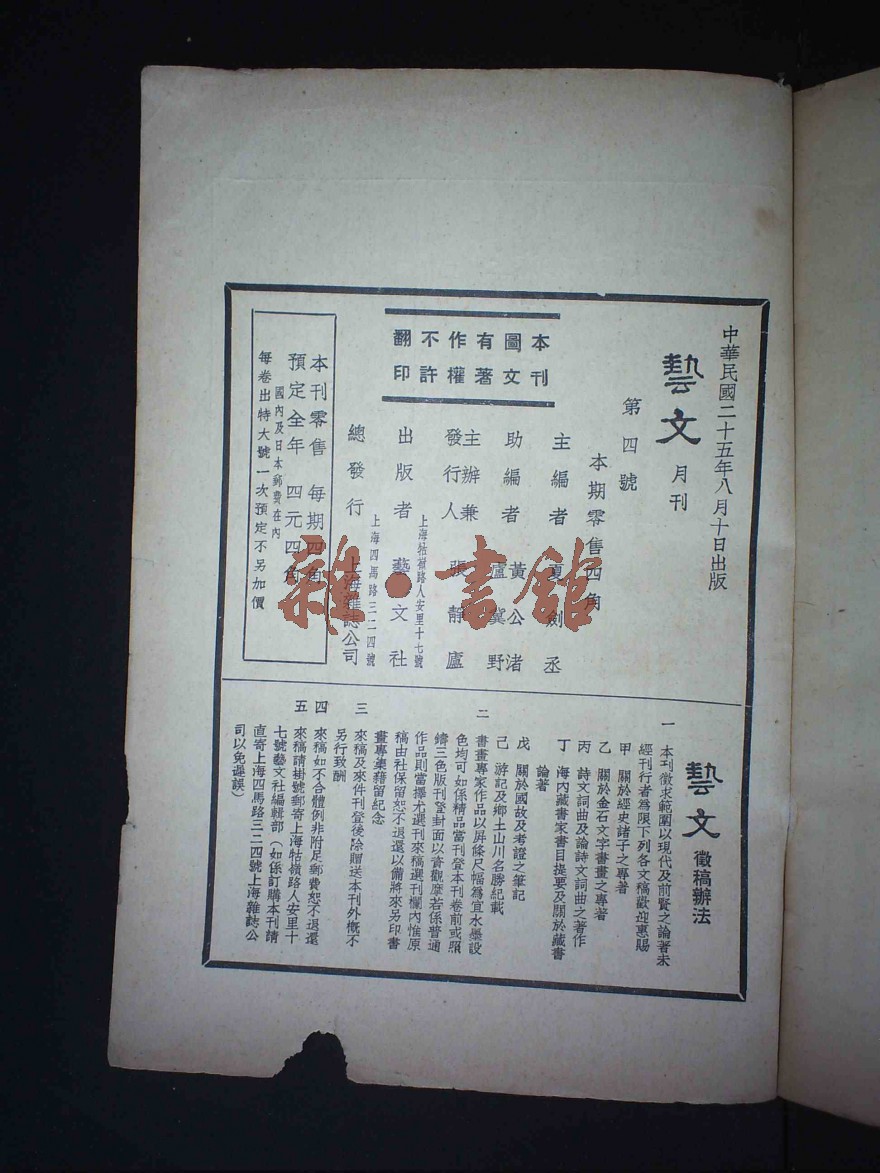 中華民國二十五年八月十日出版
藝文月刊
第四號
本期零售四角
主編者 夏劍丞
助編者 黃公渚
盧冀野
主辦兼
發行人 張靜廬
上海牯嶺路人安里十七號
出版者 藝文社
上海四馬路三二四號
總發行 上海雜誌公司
本刊
圖文
有著
作權
不許
翻印
本刊零售 每期四角
預定全年 四元四角
國內及日本郵費在內
每卷出特大號一次預定不另加價
藝文徵稿辦法
一 本刊徵求範圍以現代及前賢之論著未
經刊行者為限下列各文稿歡迎惠賜
甲 關於經史諸子之專著
乙 關於金石文字書畫之專著
丙 詩文詞曲及論詩文詞曲之著作
丁 海內藏書家書目提要及關於藏書
論著
戊 關於國故及考證之筆記
己 游記及鄉土山川名勝紀載
二 書畫專家作品以屏條尺幅為宜水墨設
色均可如係精品當刊登本刊卷前或照
鑄三色版刊登封面以資觀摩若係普通
作品則當擇尤選刊來稿選刊欄內惟原
稿由社保留恕不退還以備將來另印書
畫專集藉留紀念
三 來稿及來件刊登後除贈送本刊外概不
另行致酬
四 來稿如不合體例非附足郵費恕不退還
五 來稿請掛號郵寄上海牯嶺路人安里十
七號藝文社編輯部（如係訂購本刊請
直寄上海四馬路三二四號上海雜誌公
司以免遲誤）
雜·書館